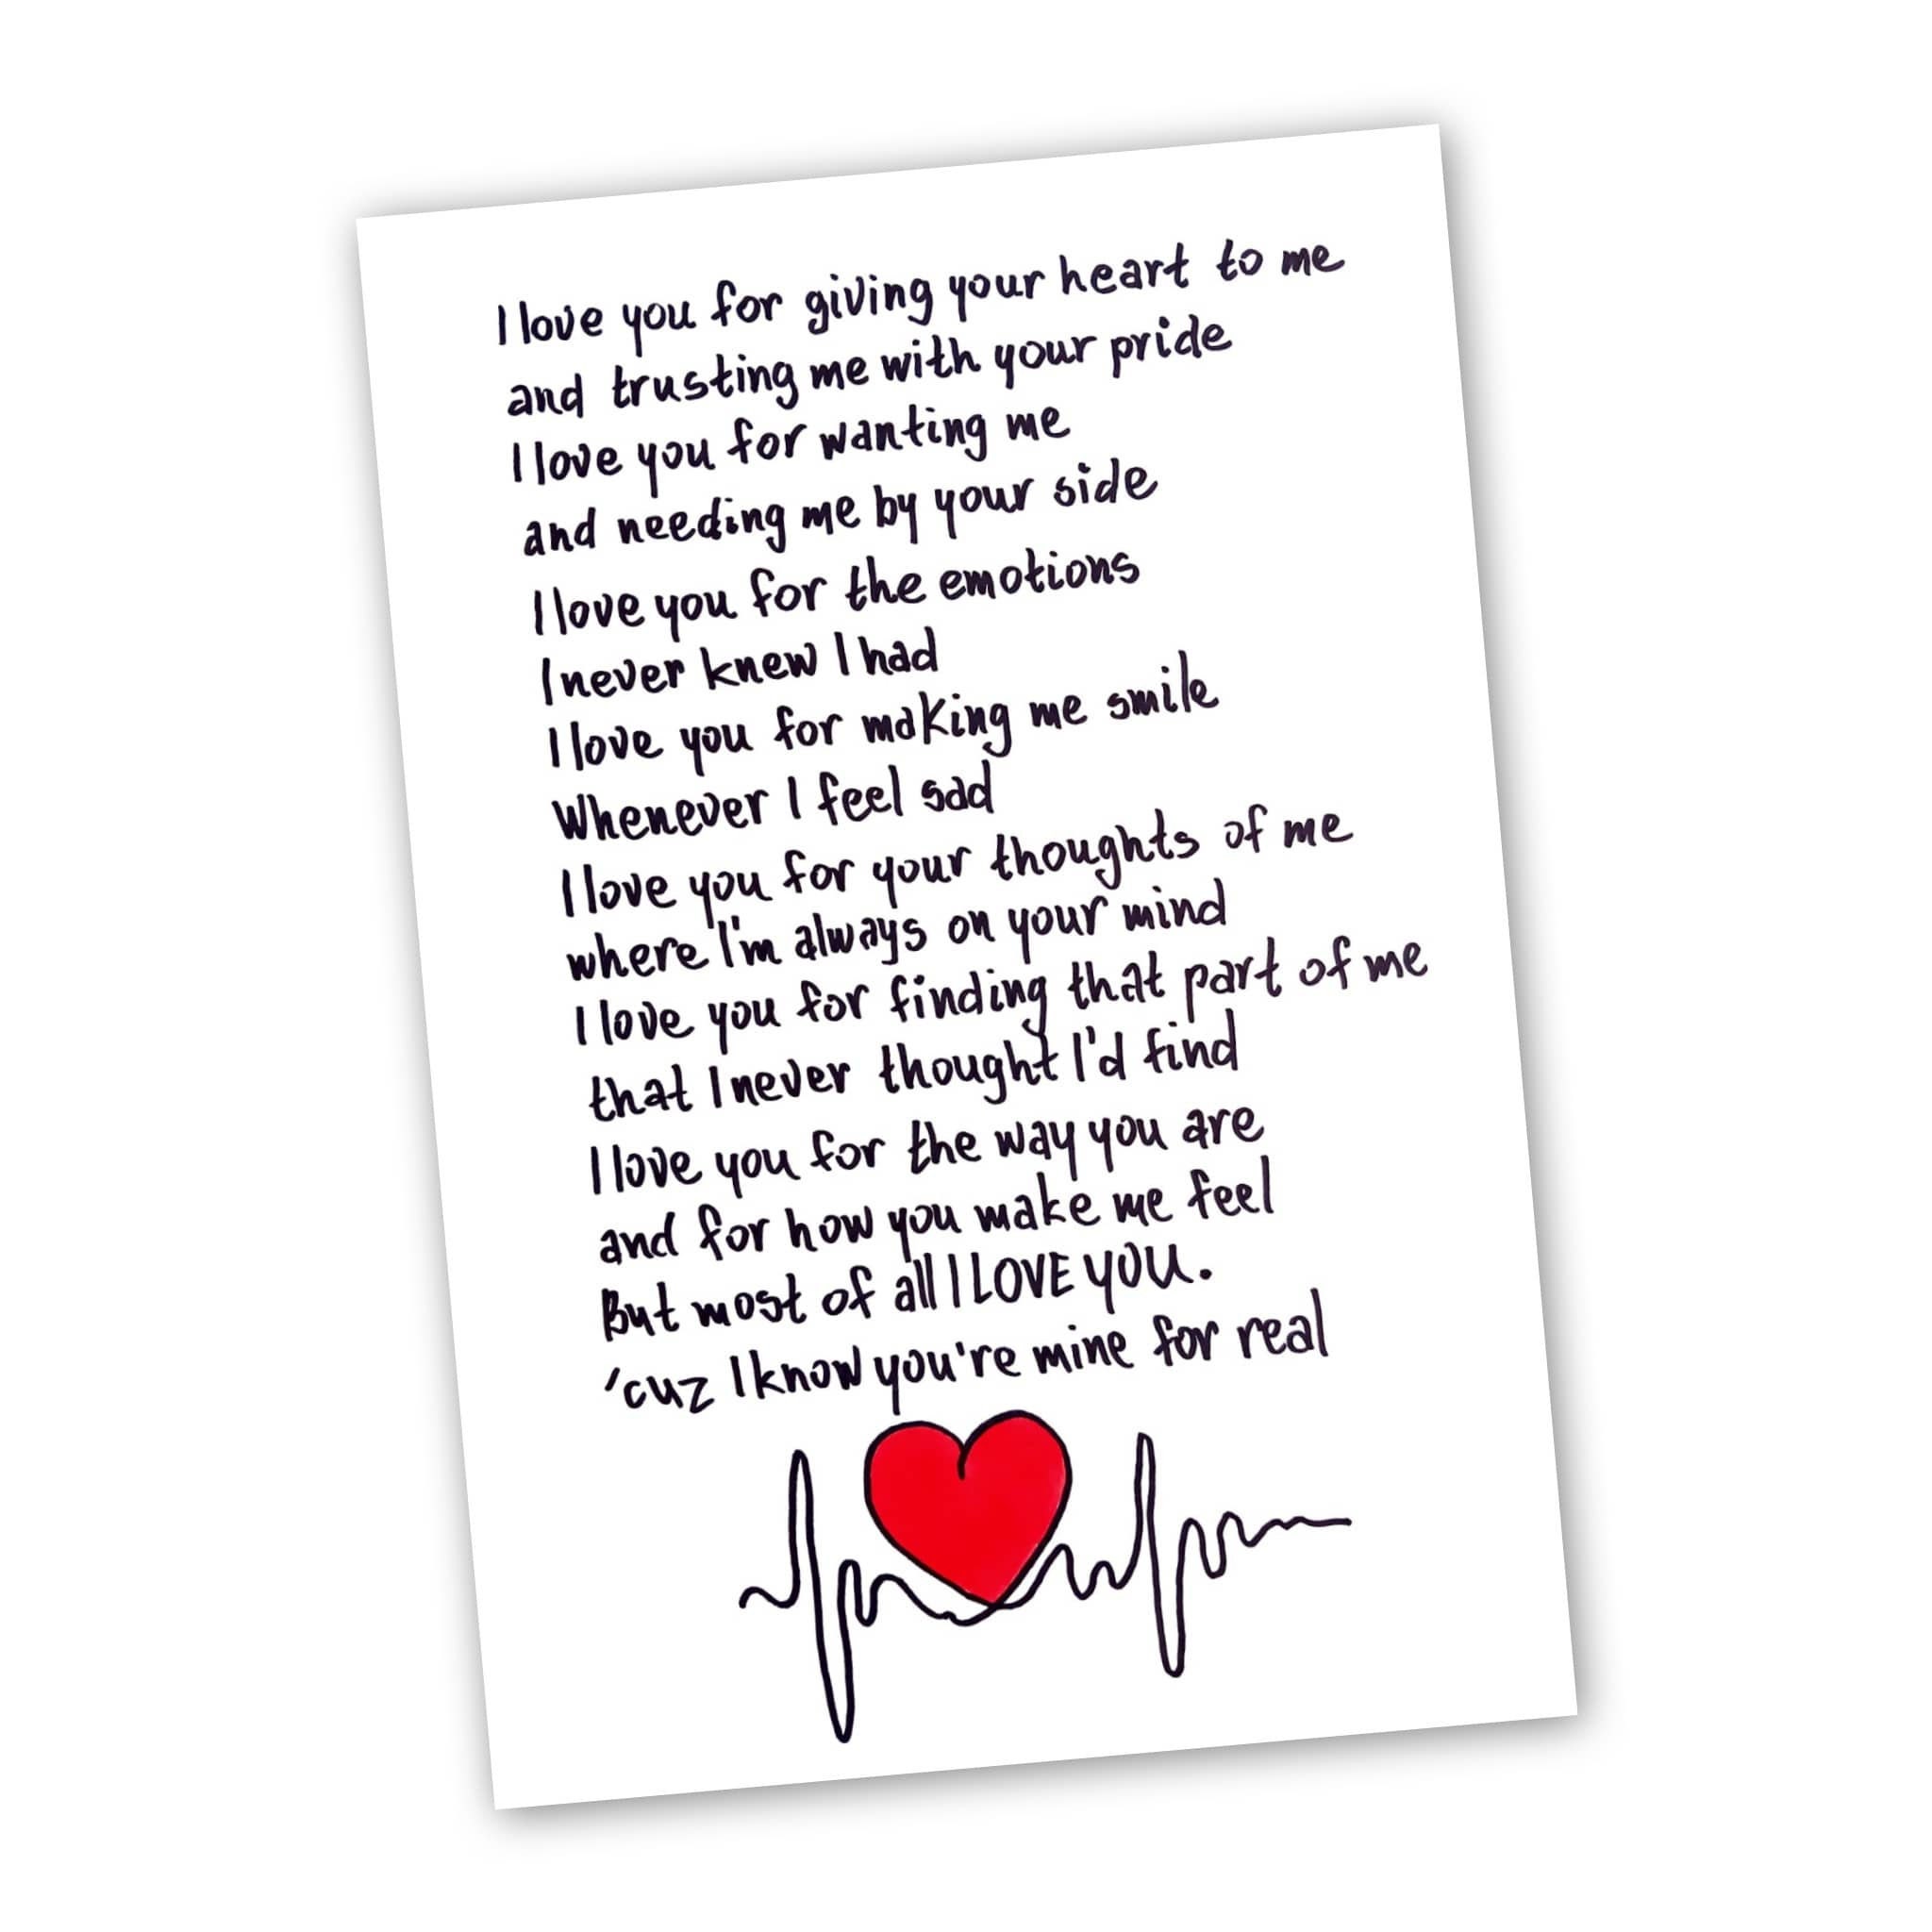 I love you for giving your heart to me
and trusting me with your pride
I love you for wanting me
and needing me by your side
I love you for the emotions
I never knew I had
I love you for making me smile
Whenever I feel sad
I love you for your thoughts of me
where I'm always on your mind
I love you for finding that part of me
that I never thought I'd find
I love you for the way you are
and for how you make me feel
But most of all I LOVE YOU.
'cuz I know you're mine for real